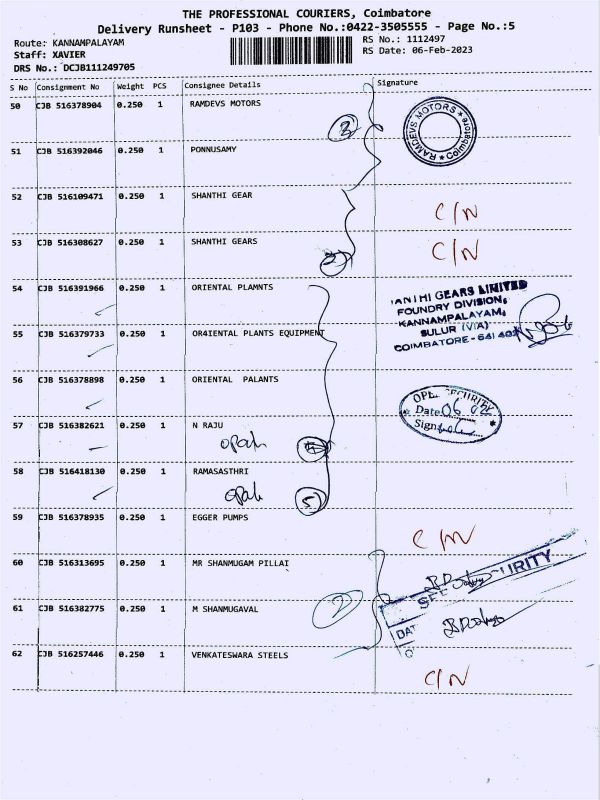 THE PROFESSIONAL COURIERS, Coimbatore
Delivery Runsheet - P103 - Phone No.:0422-3505555 - Page No.:5
Route: KANNAMPALAYAM
RS No.: 1112497
Staff: XAVIER
RS Date: 06-Feb-2023
DRS No.: DCJB111249705
S No Consignment No Weight PCS Consignee Details Signature
50 CJB 516378904 0.250 1 RAMDEVS MOTORS
RAMDEVS MOTORS * Coimbatore *
51 CJB 516392046 0.250 1 PONNUSAMY
52 CJB 516109471 0.250 1 SHANTHI GEAR
C/N
53 CJB 516308627 0.250 1 SHANTHI GEARS
C/N
54 CJB 516391966 0.250 1 ORIENTAL PLAMNTS
ANTHI GEARS LIMITED
FOUNDRY DIVISION,
KANNAMPALAYAM,
SULUR (VIA)
COIMBATORE - 641 402
55 CJB 516379733 0.250 1 OR4IENTAL PLANTS EQUIPMENT
56 CJB 516378898 0.250 1 ORIENTAL PALANTS
Date 06 02
Sign
57 CJB 516382621 0.250 1 N RAJU
58 CJB 516418130 0.250 1 RAMASASTHRI
5
59 CJB 516378935 0.250 1 EGGER PUMPS
C/N
60 CJB 516313695 0.250 1 MR SHANMUGAM PILLAI
61 CJB 516382775 0.250 1 M SHANMUGAVAL
2
62 CJB 516257446 0.250 1 VENKATESWARA STEELS
C/N